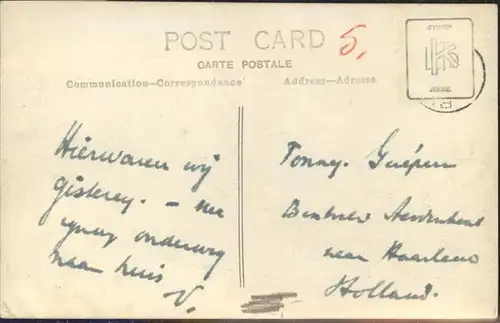 POST CARD
5.
CARTE POSTALE
Communication—Correspondance
Address—Adresse
STAMP
HERE
Hierwaren wij
gisteren. – nu
onderweg
naar huis
V.
Tonny. Guépin
Bentveld Aerdenhout
near Haarlem
Holland.